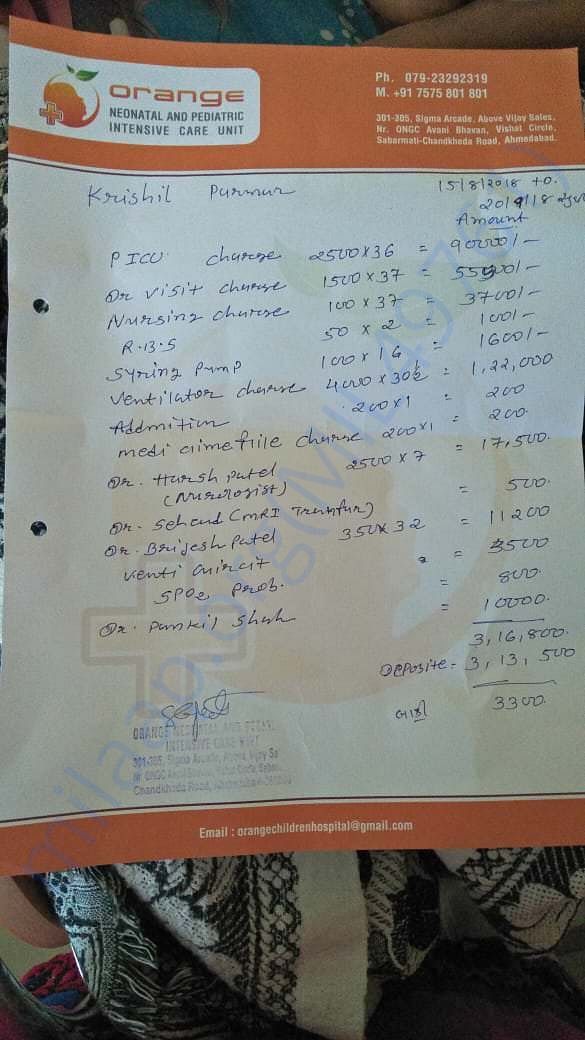 orange
NEONATAL AND PEDIATRIC
INTENSIVE CARE UNIT
Ph. 079-23292319
M. +91 7575 801 801
301-305, Sigma Arcade, Above Vijay Sales,
Nr. ONGC Avani Bhavan, Vishat Circle,
Sabarmati-Chandkheda Road, Ahmedabad.
Krishil Parmar
15/8/2018 to.
20/9/18
Amount
PICU charge 2500×36 = 90000/-
Dr visit charge 1500×37 = 55500/-
Nursing charge 100×37 = 3700/-
R.B.S 50×2 = 100/-
Syring Pump 100×16 = 1600/-
Ventilator charge 4000×30½ = 1,22,000
Addmition 200×1 = 200
charge 200×1 = 200.
Dr. Harsh Patel 2500×7 = 17,500.
(Nurologist)
Dr. (MRI = 500.
Dr. Brijesh Patel 350×32 = 11200
Venti = 3500
SPO2 Prob. = 800
Dr. Pankil Shah = 10000.
3,16,800.
Deposite = 3,13,500
બાકી 3300.
ORANGE NEONATAL AND PEDIA.
INTENSIVE CARE UNIT
301-305, Sigma Arcade, Above Vijay Sa
Chandkheda Road,
Email : orangechildrenhospital@gmail.com
milaap.org